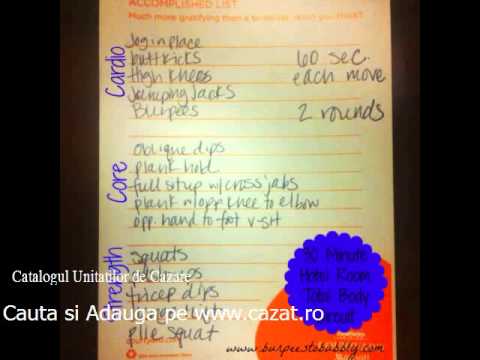 ACCOMPLISHED LIST
Much more gratifying than a to-do list, don't you think?
Cardio
jog in place
butt kicks
High Knees
Jumping Jacks
Burpees
60 sec.
each move
2 rounds
Core
oblique dips
plank hold
full situp w/cross jabs
plank w/opp knee to elbow
opp. hand to foot v-sit
Strength
squats
tricep dips
plie squat
30 Minute
Hotel Room
Total Body
www.burpeestobubbly.com
Catalogul Unitatilor de Cazare
Cauta si Adauga pe www.cazat.ro